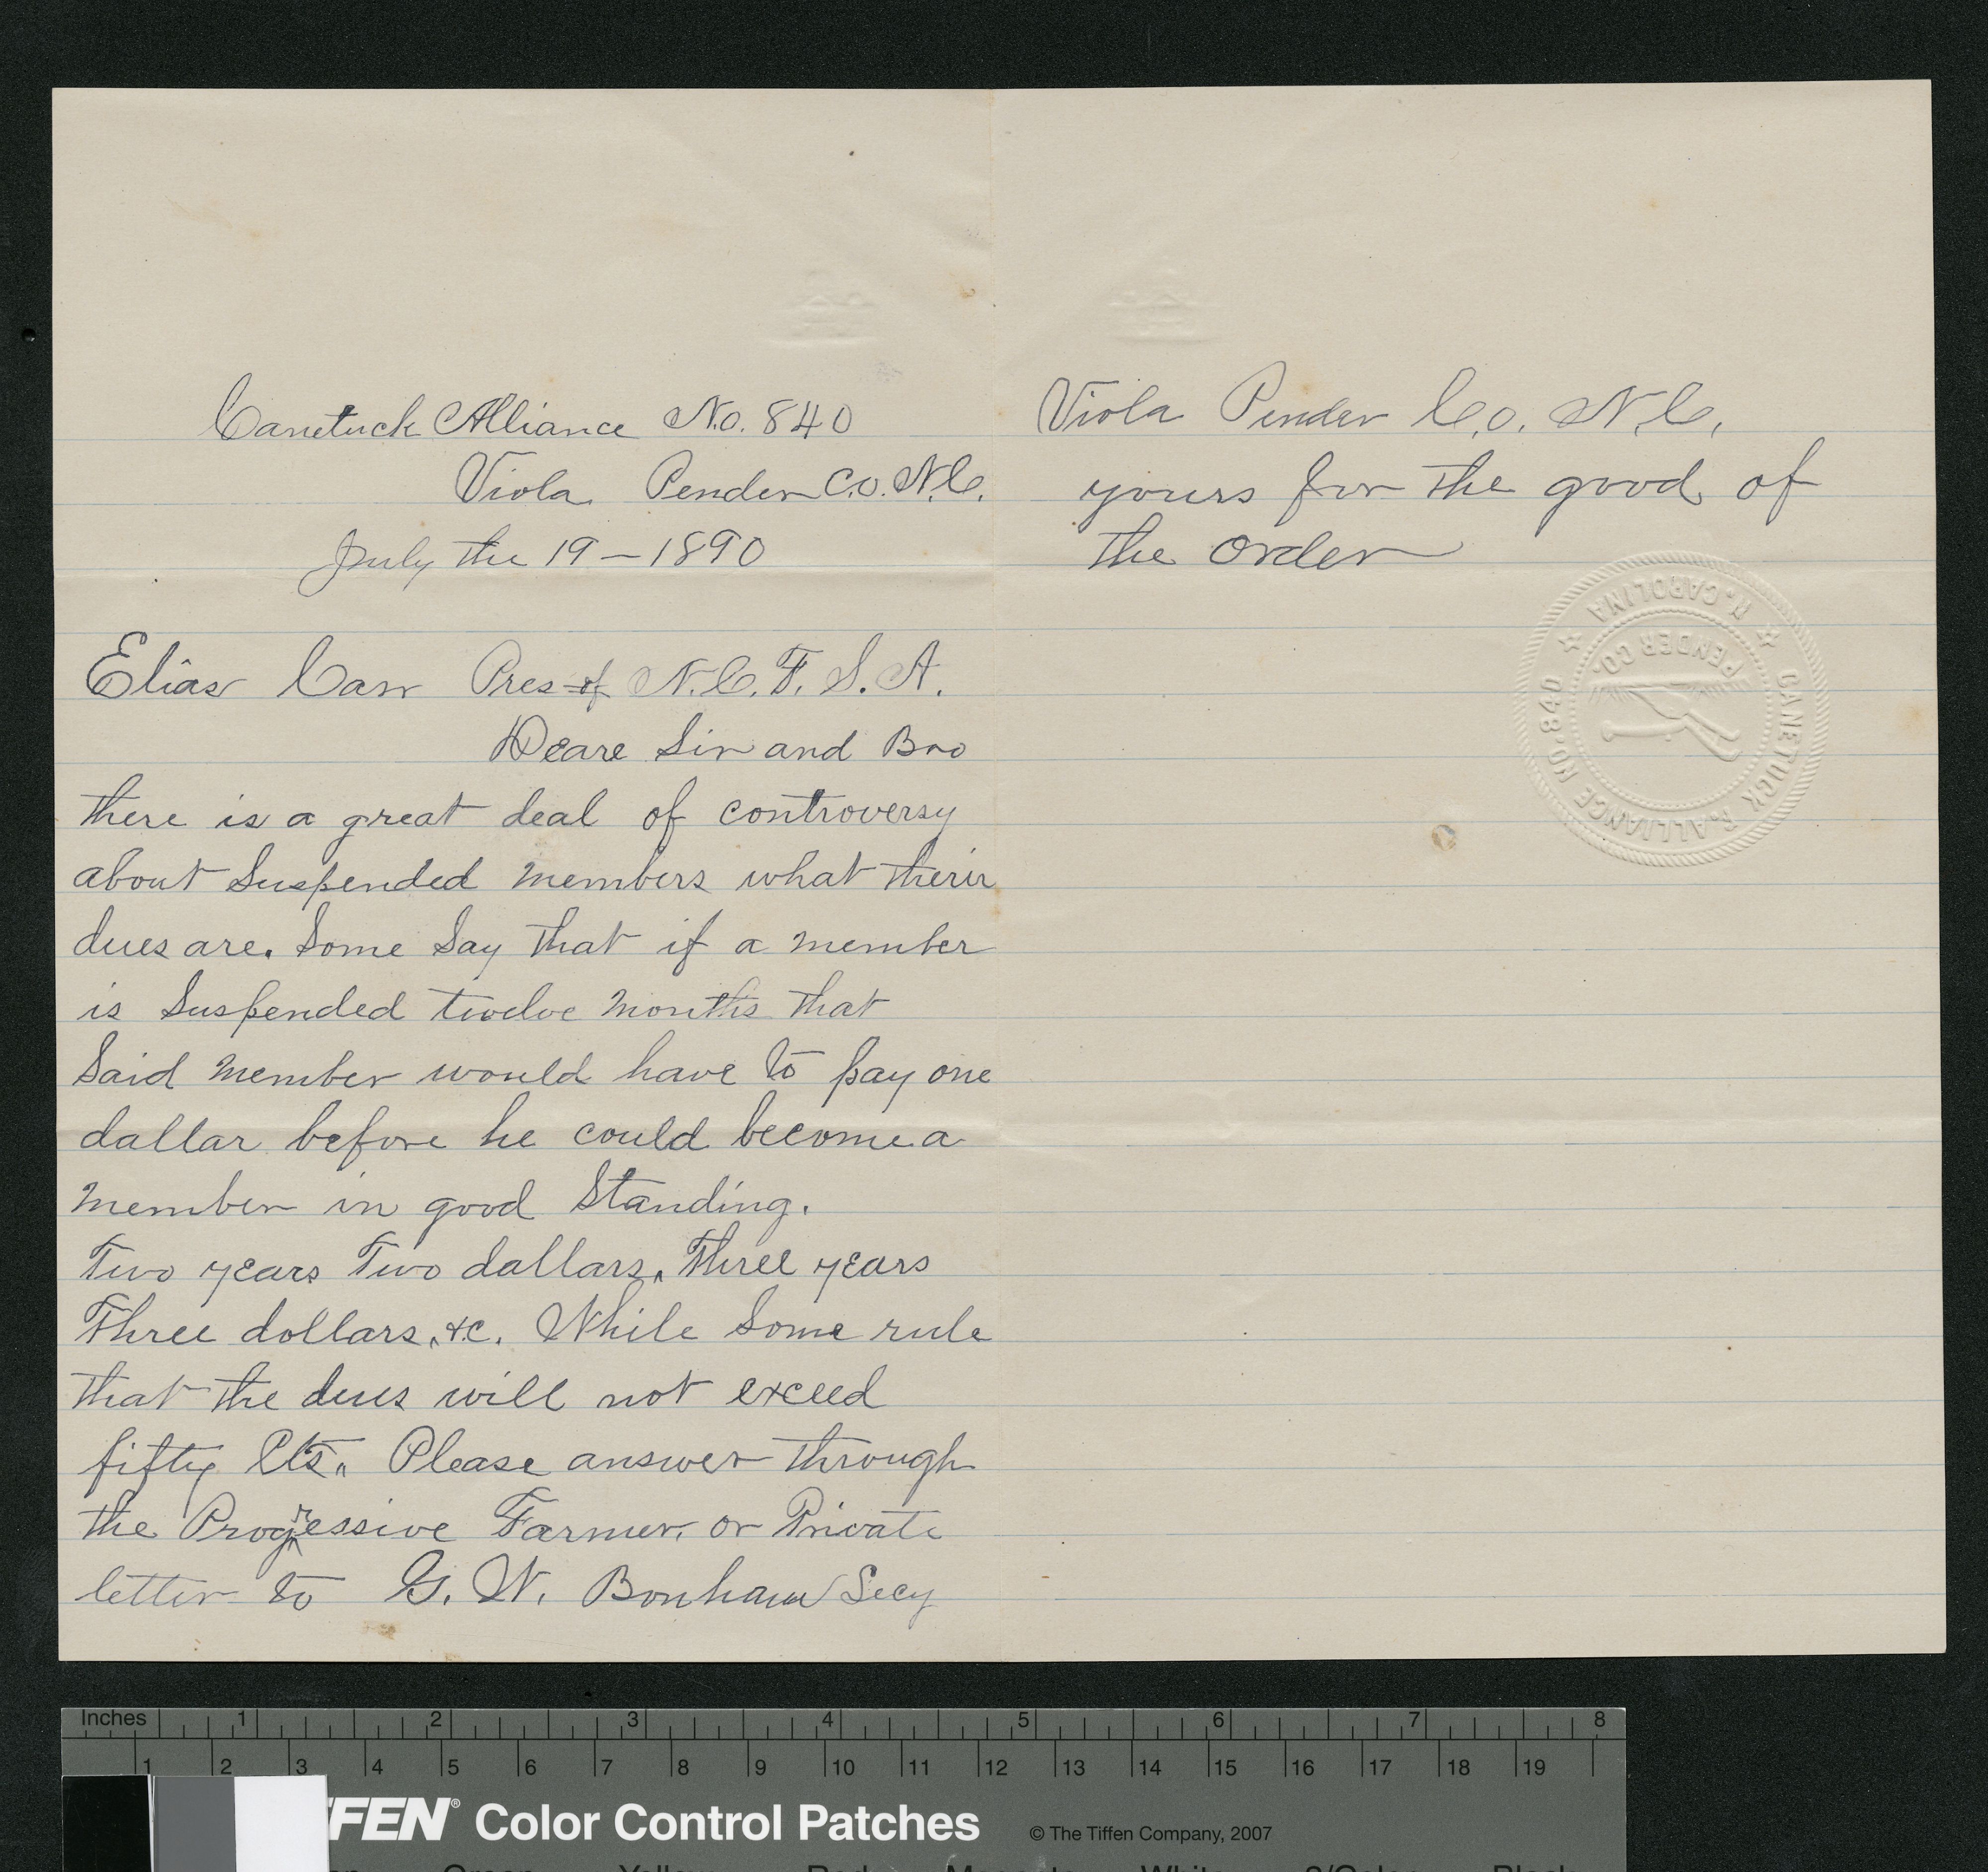 Canetuck Alliance No. 840
Viola Pender C.o. N.C.
July the 19 – 1890
Elias Carr Pres of N.C. F. S. A.
Deare Sir and Bro
there is a great deal of controversy
about Suspended members what their
dues are. Some Say that if a member
is Suspended twelve months that
Said member would have to pay one
dallar before he could become a
member in good Standing.
Two years Two dallars, Three years
Three dollars, &c. While Some rule
that the dues will not exceed
fifty Cts. Please answer through
the Progressive Farmer, or Private
letter to G. W. Bonham Secy
Viola Pender C.o. N.C.
yours for the good of
the order
CANETUCK F. ALLIANCE NO 840
N. CAROLINA
PENDER CO.
Inches 1 2 3 4 5 6 7 8
1 2 3 4 5 6 7 8 9 10 11 12 13 14 15 16 17 18 19
FFEN® Color Control Patches © The Tiffen Company, 2007